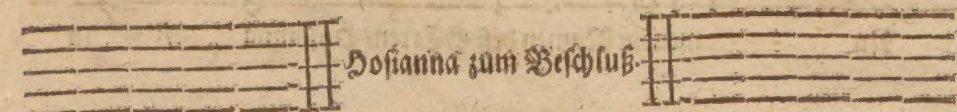 Hosianna zum Beschluß.